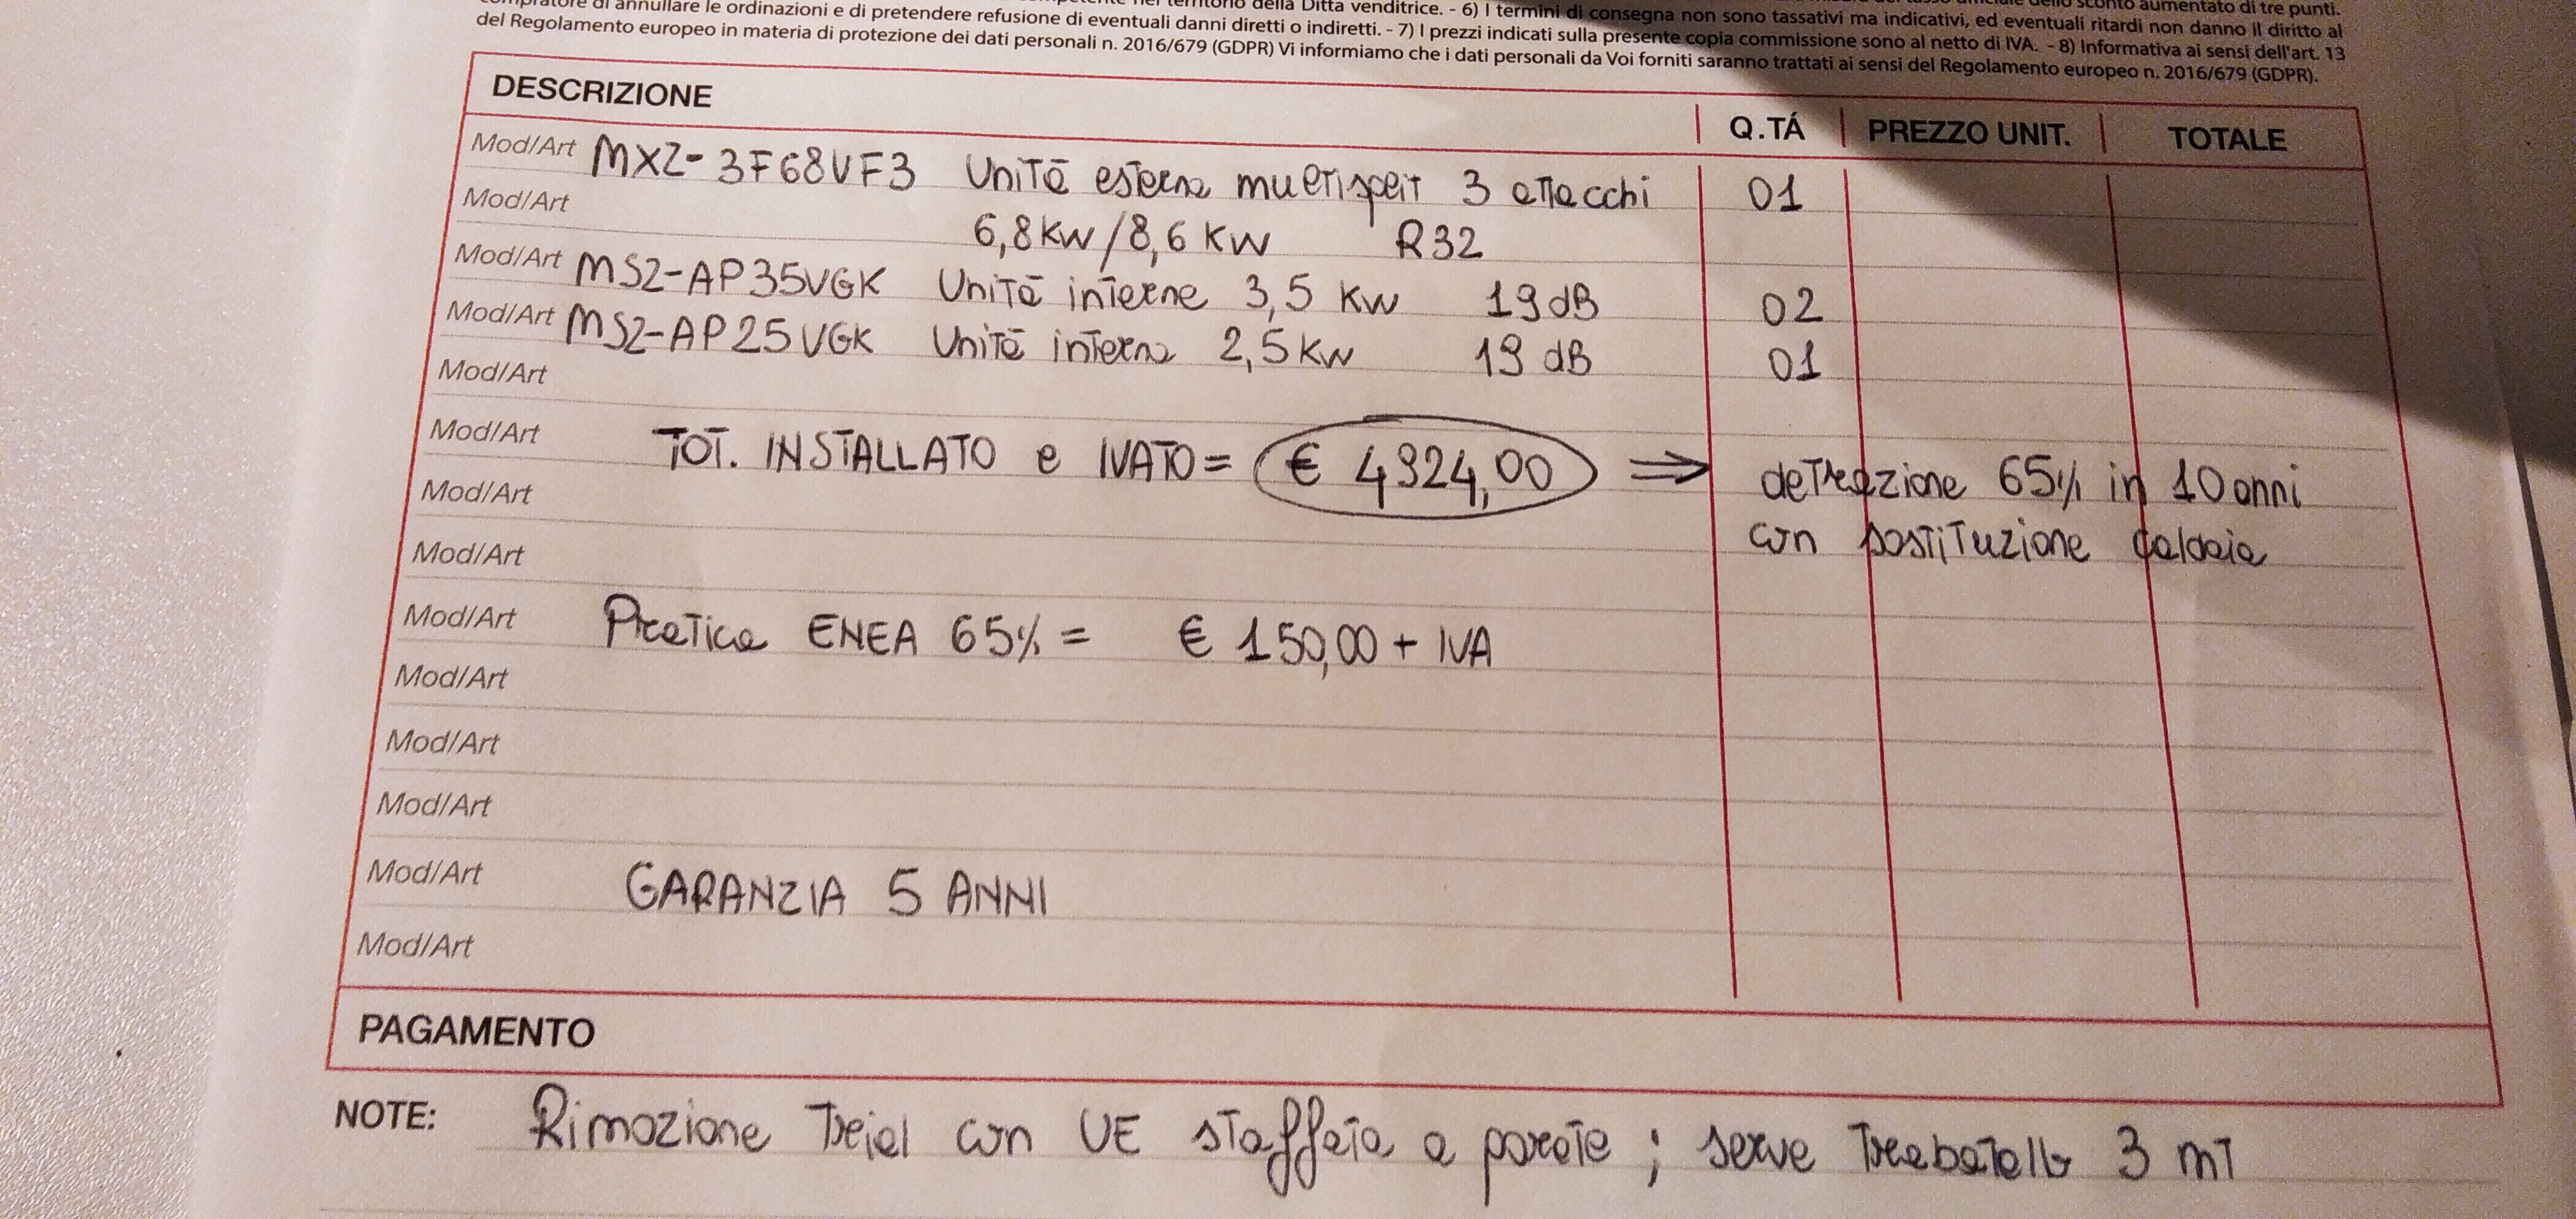 compratore di annullare le ordinazioni e di pretendere refusione di eventuali danni diretti o indiretti. - 7) I prezzi indicati sulla presente copia commissione sono al netto di IVA. - 8) Informativa ai sensi dell'art. 13
del Regolamento europeo in materia di protezione dei dati personali n. 2016/679 (GDPR) Vi informiamo che i dati personali da Voi forniti saranno trattati ai sensi del Regolamento europeo n. 2016/679 (GDPR).
DESCRIZIONE Q.TÁ PREZZO UNIT. TOTALE
Mod/Art MXZ-3F68VF3 Unità esterna multisplit 3 attacchi 01
Mod/Art 6,8 KW/8,6 KW R32
Mod/Art MSZ-AP35VGK Unità interne 3,5 KW 19 dB 02
Mod/Art MSZ-AP25VGK Unità interna 2,5 KW 19 dB 01
Mod/Art
Mod/Art TOT. INSTALLATO e IVATO = € 4924,00 ⇒ detrazione 65% in 10 anni
Mod/Art con sostituzione caldaia
Mod/Art
Mod/Art Pratica ENEA 65% = € 150,00 + IVA
Mod/Art
Mod/Art
Mod/Art
Mod/Art GARANZIA 5 ANNI
Mod/Art
PAGAMENTO
NOTE: Rimozione Trial con UE staffata a parete ; serve Trabatello 3 mT